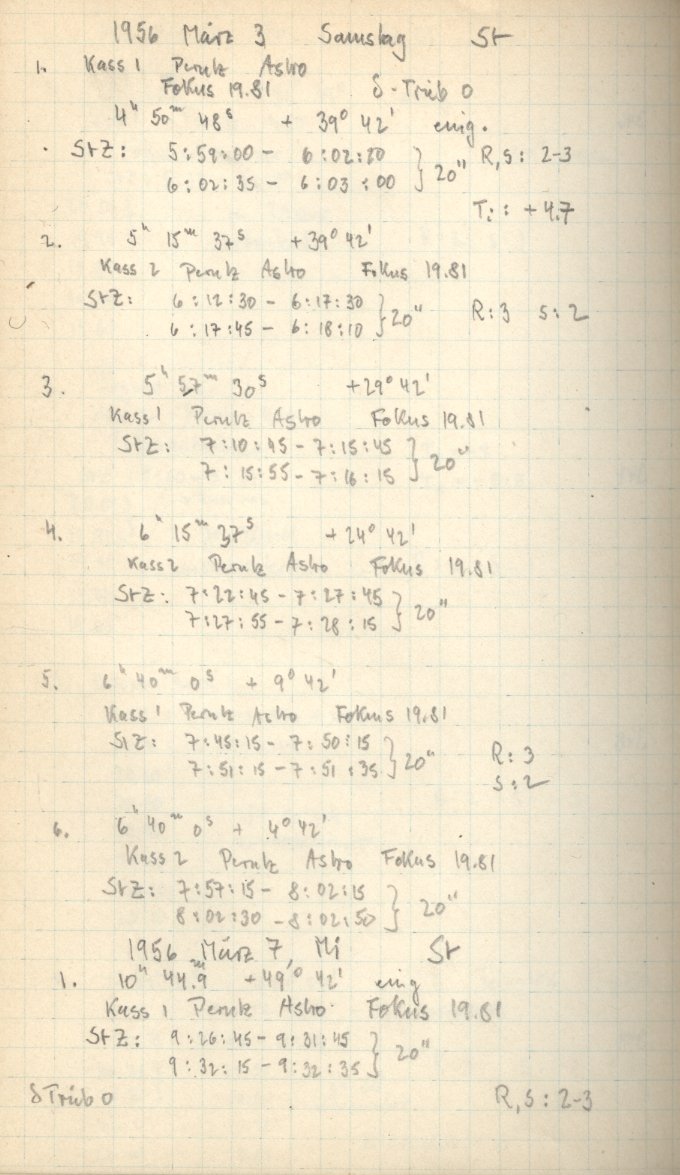 1956 März 3 Samstag St
1. Kass 1 Perutz Astro
Fokus 19.81 δ-Trieb 0
4h 50m 48s + 39° 42' eing.
StZ: 5:59:00 - 6:02:20 } 20" R,S: 2-3
6:02:35 - 6:03:00
Ti: +4.7
2. 5h 15m 37s +39° 42'
Kass 2 Perutz Astro Fokus 19.81
StZ: 6:12:30 - 6:17:30 } 20" R:3 S:2
6:17:45 - 6:18:10
3. 5h 57m 30s +29° 42'
Kass 1 Perutz Astro Fokus 19.81
StZ: 7:10:45 - 7:15:45 } 20"
7:15:55 - 7:16:15
4. 6h 15m 37s + 24° 42'
Kass 2 Perutz Astro Fokus 19.81
StZ: 7:22:45 - 7:27:45 } 20"
7:27:55 - 7:28:15
5. 6h 40m 0s + 9° 42'
Kass 1 Perutz Astro Fokus 19.81
StZ: 7:45:15 - 7:50:15 } 20" R:3
7:51:15 - 7:51:35 S:2
6. 6h 40m 0s + 4° 42'
Kass 2 Perutz Astro Fokus 19.81
StZ: 7:57:15 - 8:02:15 } 20"
8:02:30 - 8:02:50
1956 März 7, Mi St
1. 10h 44.9m +49° 42' eing
Kass 1 Perutz Astro Fokus 19.81
StZ: 9:26:45 - 9:31:45 } 20"
9:32:15 - 9:32:35
δ Trieb 0 R,S: 2-3